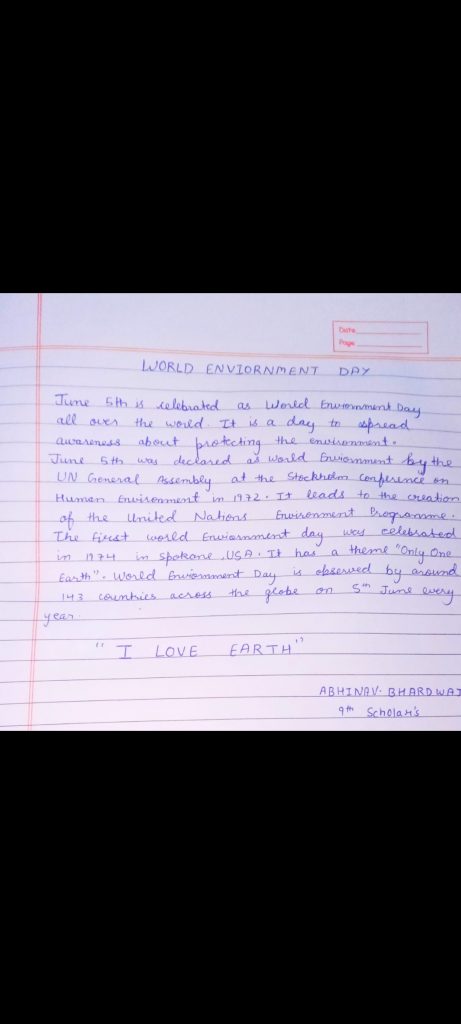 Date
Page
WORLD ENVIORNMENT DAY
June 5th is celebrated as World Enviornment Day
all over the world. It is a day to spread
awareness about protecting the environment.
June 5th was declared as World Enviornment by the
UN General Assembly at the Stockholm conference on
Human Environment in 1972. It leads to the creation
of the United Nations Environment Programme.
The first world Enviornment day was celebrated
in 1974 in spokane, USA. It has a theme "Only One
Earth". World Enviornment Day is observed by around
143 countries across the globe on 5th June every
year.
"I LOVE EARTH"
ABHINAV. BHARDWAJ
9th Scholar's